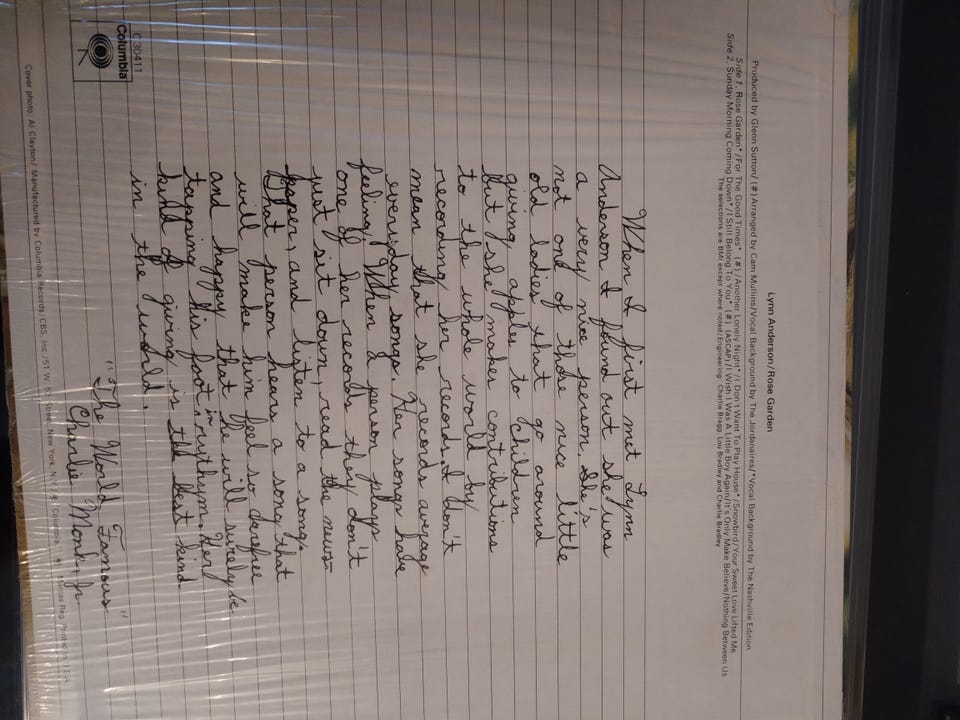 Lynn Anderson/Rose Garden
Produced by Glenn Sutton/(#)Arranged by Cam Mullins/Vocal Background by The Jordanaires/*Vocal Background by The Nashville Edition
Side 1. Rose Garden*/For The Good Times* (#)/Another Lonely Night*/I Don't Want To Play House*/Snowbird/Your Sweet Love Lifted Me
Side 2. Sunday Morning Coming Down*/I Still Belong To You* (#) (ASCAP)/I Wish I Was A Little Boy Again/It's Only Make Believe/Nothing Between Us
The selections are BMI except where noted/Engineering: Charlie Bragg, Lou Bradley and Charlie Bradley
When I first met Lynn
Anderson I found out she was
a very nice person. She's
not one of those nice little
old ladies that go around
giving apples to children
but she makes contributions
to the whole world by
recording her records. I don't
mean that she records average
everyday songs. Her songs have
feeling. When a person plays
one of her records they don't
just sit down, read the news-
paper, and listen to a song.
That person hears a song that
will make him feel so carefree
and happy that he will surely be
tapping his foot in rythym. Her
kind of giving is the best kind
in the world.
"The World Famous"
Charlie Monk, Jr.
C 30411
Columbia
Cover photo: Al Clayton/Manufactured by Columbia Records/CBS, Inc./51 W. 52 Street, New York, N.Y./® Columbia, Marcas Reg. Printed in U.S.A.